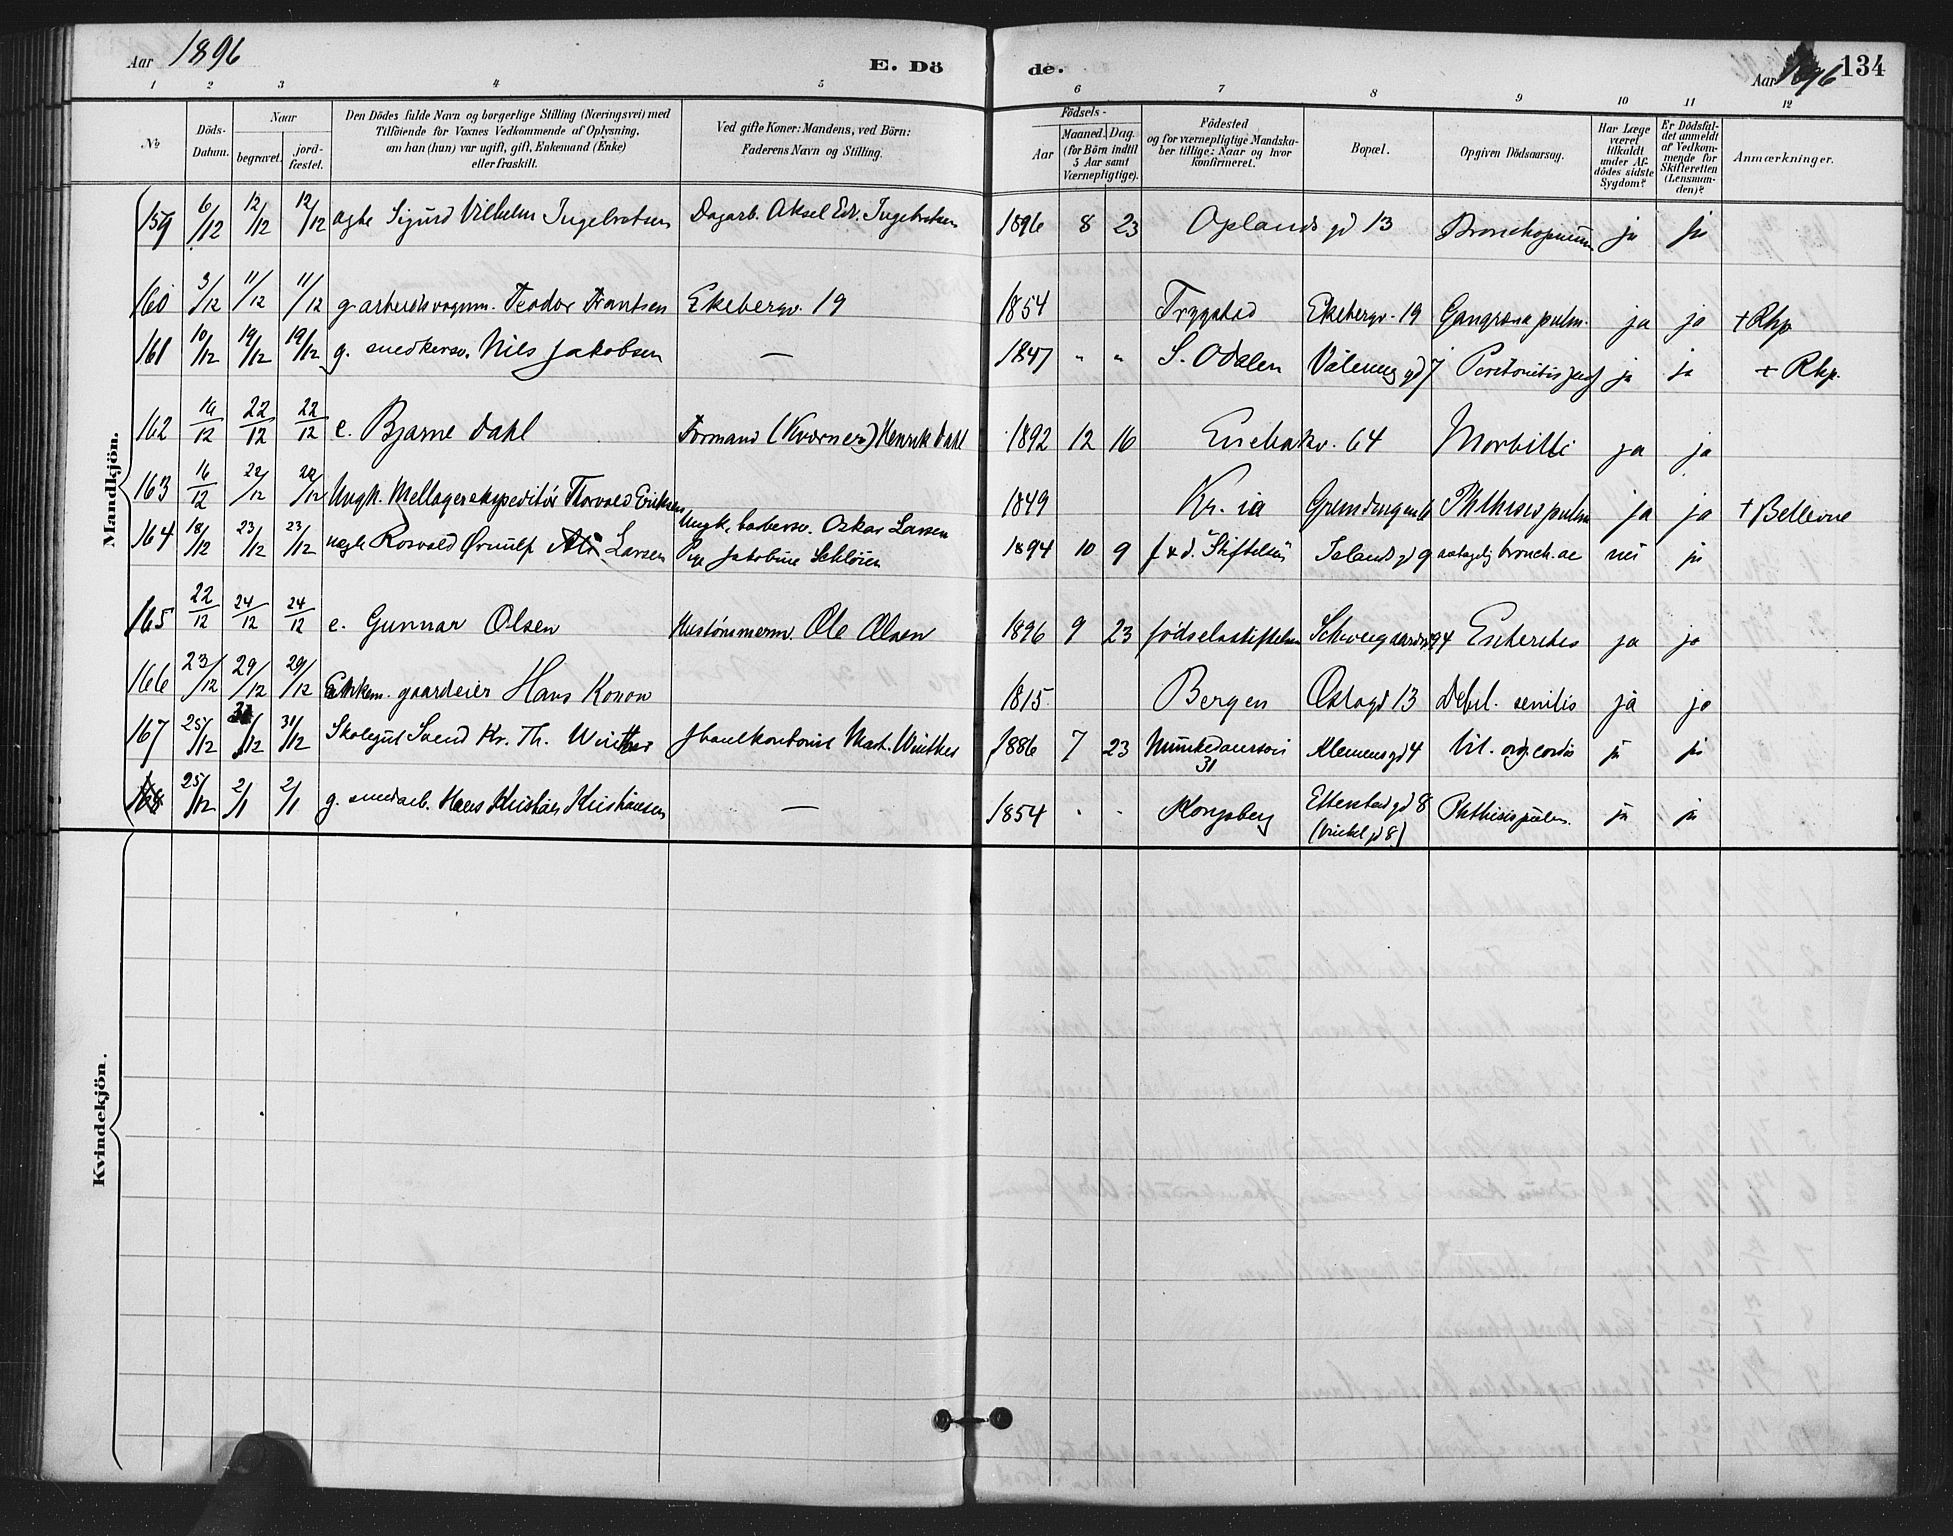 Aar 1896
E. Döde.
Aar 1896 134
1 2 3 4 5 6 7 8 9 10 11 12
No
Döds-Datum.
Naar
begravet.
jordfæstet.
Den Dödes fulde Navn og borgerlige Stilling (Næringsvei) med
Tilföiende for Voxnes Vedkommende af Oplysning,
om han (hun) var ugift, gift, Enkemand (Enke)
eller fraskilt.
Ved gifte Koner: Mandens, ved Börn:
Faderens Navn og Stilling.
Födsels-
Aar
Maaned. Dag.
(for Börn indtil
5 Aar samt
Værnepligtige).
Födested
og for værnepligtige Mandskaber tillige: Naar og hvor
konfirmeret.
Bopæl.
Opgiven Dödsaarsag.
Har Læge
været
tilkaldt
under Afdödes sidste
Sygdom?
Er Dödsfaldet anmeldt
af Vedkommende for
Skifteretten
(Lensmanden)?
Anmærkninger.
Mandkjön.
159 6/12 12/12 12/12 ægte Sigurd Vilhelm Ingebretsen Dagarb. Aksel Edv. Ingebretsen 1896 8 23 Oplands gd 13 Bronchopneum ja ja
160 3/12 11/12 11/12 g. arbeidsvognm. Teodor Frantsen Ekebergv. 19 1854 Trygstad Ekebergv. 19 Gangræna pulm. ja ja + Rhp
161 10/12 19/12 19/12 g. snedkersv. Nils Jakobsen — 1847 " " S. Odalen Vaalereng gd 7 Peritonitis ja ja + Rhp.
162 16/12 22/12 22/12 e. Bjarne Dahl Formand (Kværner) Henrik Dahl 1892 12 16 Enebakv. 64 Morbilli ja ja
163 16/12 22/12 22/12 Ungk. Mellagerekspeditør Thorvald Eriksen 1849 Kr.ia Grændsegen 6 Phthisis pulm ja ja + Bellevue
164 18/12 23/12 23/12 uægte Rosvald Ørnulf Larsen Ungk. barbersv. Oskar Larsen
Pige Jakobine Schlöien 1894 10 9 f. & d. "Stiftelsen" Jelands gd 9 bronch. ac nei ja
165 22/12 24/12 24/12 e. Gunnar Olsen Ole Olsen 1896 9 23 fødselsstiftelsen Schweigaardsg 94 Enteritis ja ja
166 23/12 29/12 29/12 Enkem. gaardeier Hans Konow 1815 Bergen Oslogd 13 Debil. senilis ja ja
167 25/12 31/12 31/12 Skolegut Svend Kr. Th. Winther Mart. Winther 1886 7 23 Munkedamsvei
31 Klemensgd 4 Vit. org. cordis ja ja
168 25/12 2/1 2/1 g. smedarb. Hans Kristian Kristiansen — 1854 " " Kongsberg Etterstad gd 8
(Vinkel gd 8) Phthisis pulm. ja ja
Kvindekjön.